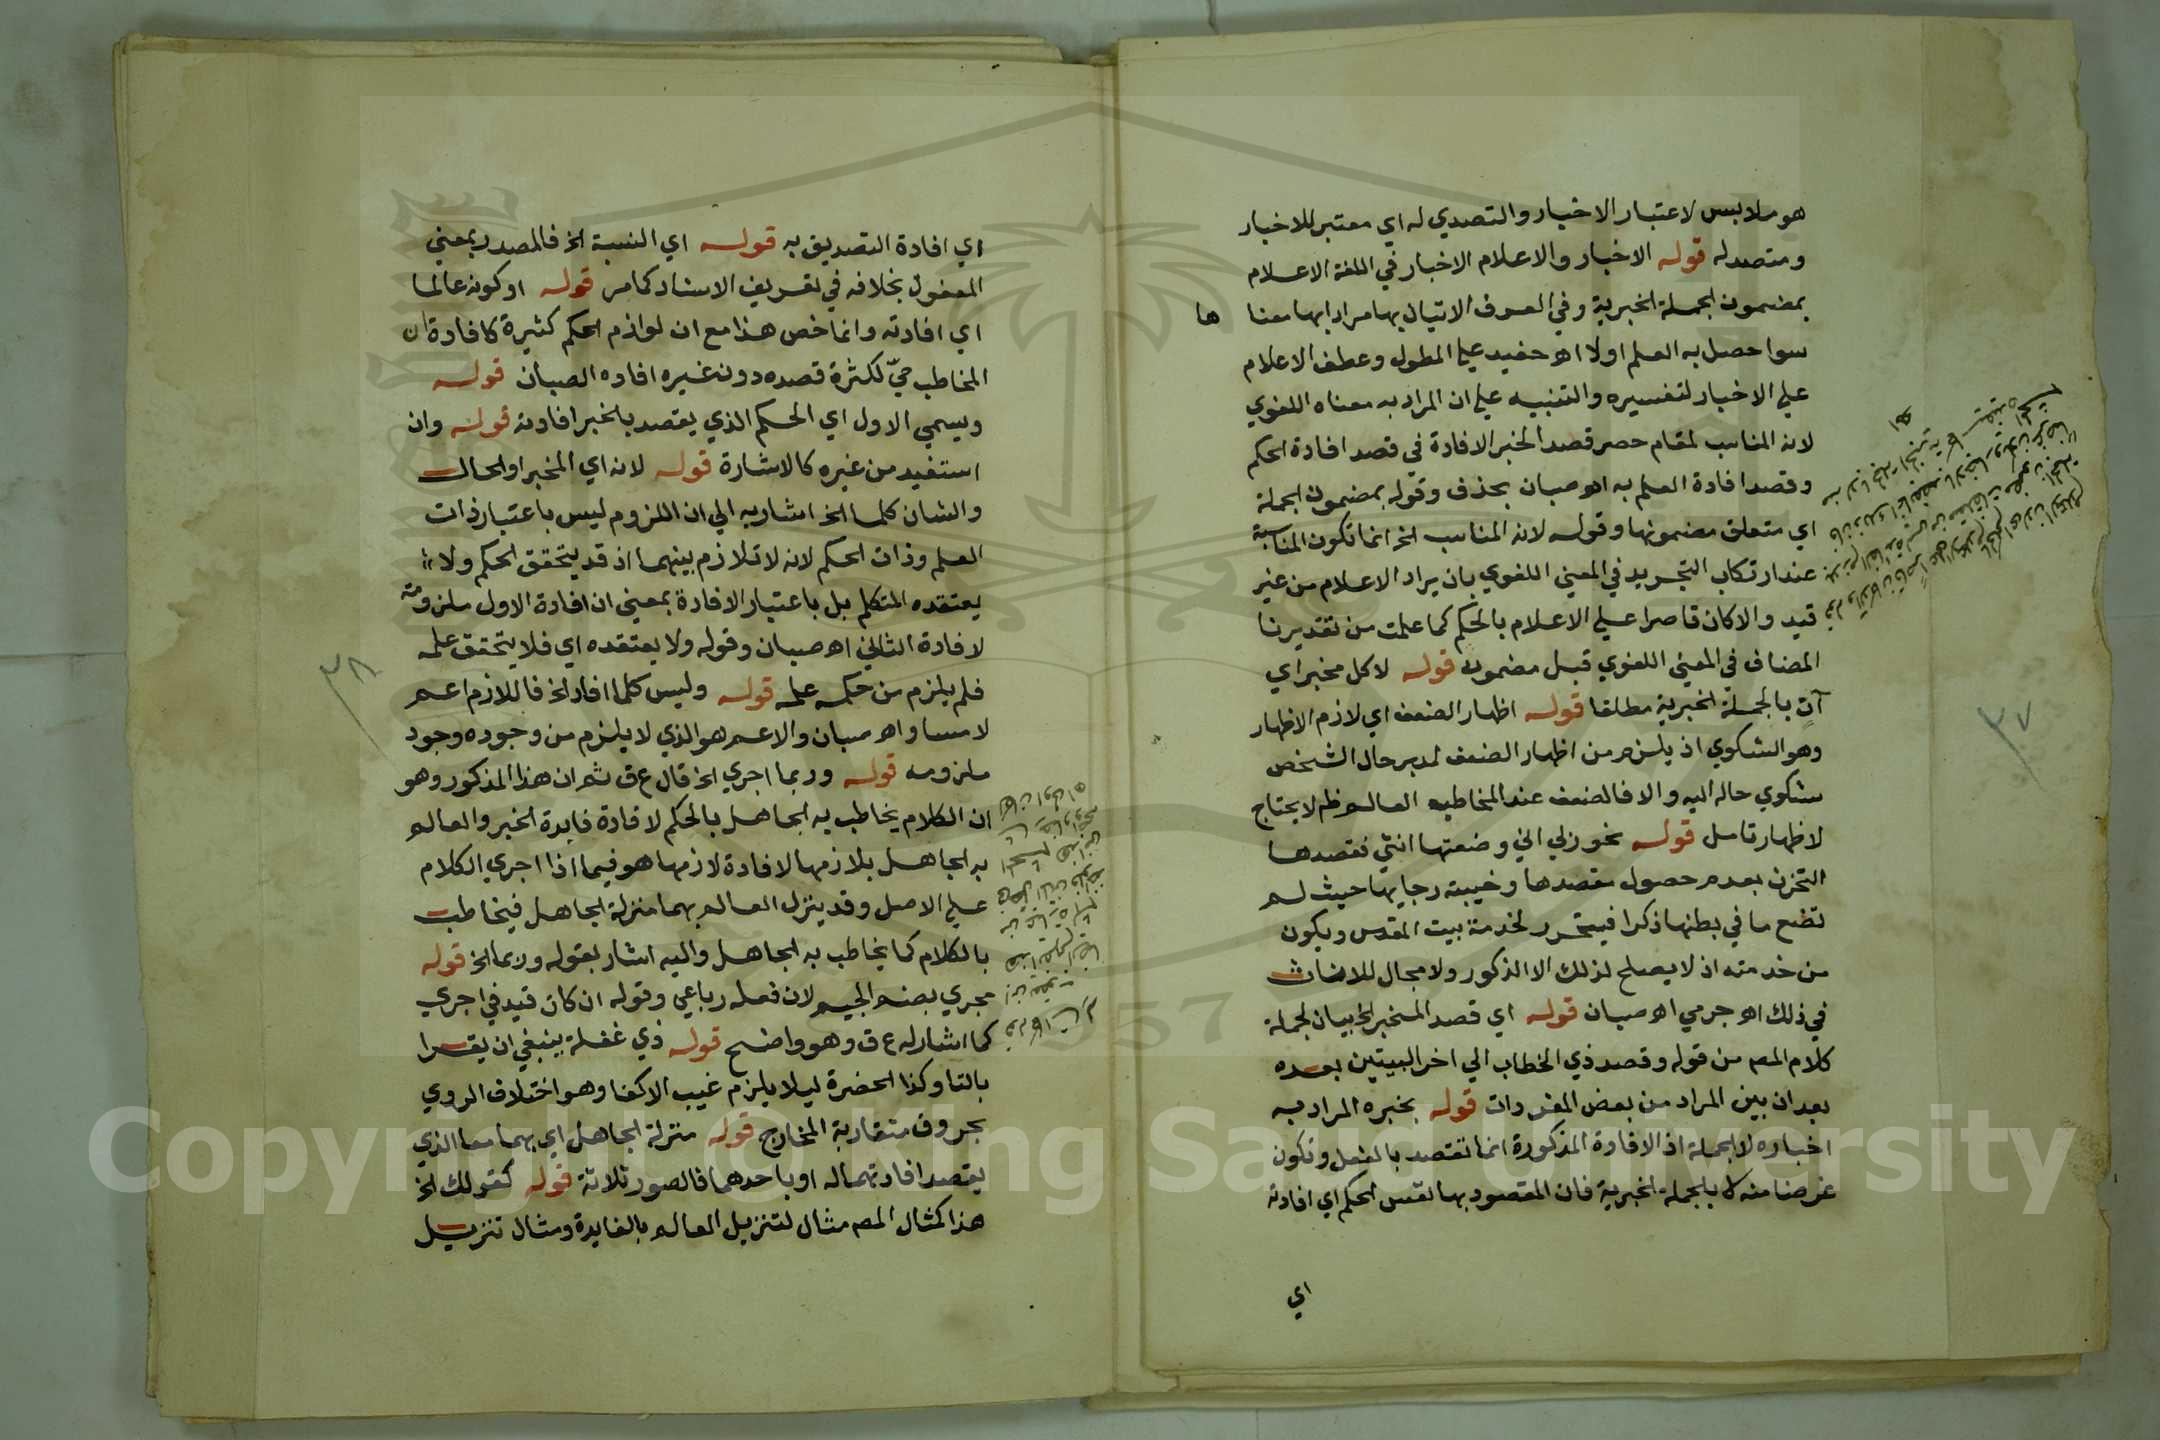 هو ملابس لاعتبار الاخبار والتصدي له اي معتبر للاخبار
ومتصد له قوله الاخبار والاعلام الاخبار في اللغة الاعلام
بمضمون الجملة الخبرية وفي العرف الاتيان بها مرادا بها معنا ها
سوا حصل به العلم اولا اهـ حفيد علي المطول وعطف الاعلام
علي الاخبار لتفسيره والتنبيه علي ان المراد به معناه اللغوي
لانه المناسب لمقام حصر قصد الخبر الافادة في قصد افادة الحكم
وقصد افادة العلم به اهـ صبان بحذف وقوله بمضمون الجملة
اي متعلق مضمونها وقوله لانه المناسب الخ انما تكون المناسبة
عند ارتكاب التجريد في المعني اللغوي بان يراد الاعلام من غير
قيد والا كان قاصرا علي الاعلام بالحكم كما علمت من تقديرنا
المضاف في المعني اللغوي قبل مضمون قوله لا كل مخبر اي
آت بالجملة الخبرية مطلقا قوله اظهار الضعف اي لازم الاظهار
وهو الشكوي اذ يلزم من اظهار الضعف لمدبر حال الشخص
شكوي حاله اليه والا فالضعف عند المخاطب العالم ظم لا يحتاج
لاظهار تامل قوله نحو زلي اني وضعتها انثي تقصدها
التحزن بعدم حصول مقصدها وخيبة رجايها حيث لم
تضع ما في بطنها ذكرا فيتحرر لخدمة بيت المقدس ويكون
من خدمته اذ لا يصلح لذلك الا الذكور ولا مجال للاناث
في ذلك اهـ جرمي اهـ صبان قوله اي قصد المخبر الخ بيان لجملة
كلام المصـ من قوله وقصد ذي الخطاب الي اخر البيتين بعده
بعد ان بين المراد من بعض المفردات قوله بخبره المراد به
اخباره لا الجملة اذ الافادة المذكورة انما تقصد بالفعل وتكون
غرضا منه لا بالجملة الخبرية فان المقصود بها نفس الحكم اي افادته
اي
٣٧
اي افادة التصديق به قوله اي النسبة الخ فالمصدر بمعني
المفعول بخلافه في تعريف الاسناد كما مر قوله او كونه عالما
اي افادته وانما خص هذا مع ان لوازم الحكم كثيرة كافادة ان
المخاطب حيّ لكثرة قصده دون غيره افاده الصبان قوله
ويسمي الاول اي الحكم الذي يقصد بالخبر افادته قوله وان
استفيد من غيره كالاشارة قوله لانه اي المخبر او الحال
والشان كلما الخ اشار به الي ان اللزوم ليس باعتبار ذات
العلم وذات الحكم لانه لا تلازم بينهما اذ قد يتحقق الحكم ولا
يعتقده المتكلم بل باعتبار الافادة بمعني ان افادة الاول ملزومة
لافادة الثاني اهـ صبان وقوله ولا يعتقده اي فلا يتحقق علمه
فلم يلزم من حكمه علمه قوله وليس كلما افاد الخ فاللازم اعم
لا مساو اهـ صبان والاعم هو الذي لا يلزم من وجوده وجود
ملزومه قوله وربما اجري الخ قال ع ق ثم ان هذا المذكور وهو
ان الكلام يخاطب به الجاهل بالحكم لافادة فايدة الخبر والعالم
به الجاهل بلازمها لافادة لازمها هو فيما اذا اجري الكلام
علي الاصل وقد ينزل العالم بهما منزلة الجاهل فيخاطب
بالكلام كما يخاطب به الجاهل واليه اشار بقوله وربما الخ قوله
مجري بضم الجيم لان فعله رباعي وقوله ان كان قيد في اجري
كما اشار له ع ق وهو واضح قوله ذي غفلة ينبغي ان يقرا
بالتا وكذا الحضرة ليلا يلزم غيب الاكفا وهو اختلاف الروي
بحروف متقاربة المخارج قوله منزلة الجاهل اي بهما معا الذي
يقصد افادتهما له او باحدهما فالصور ثلاثة قوله كقولك الخ
هذا كمثال المصـ مثال لتنزيل العالم بالفايدة ومثال تنزيل
٣٨
Copyright © King Saud University
1957